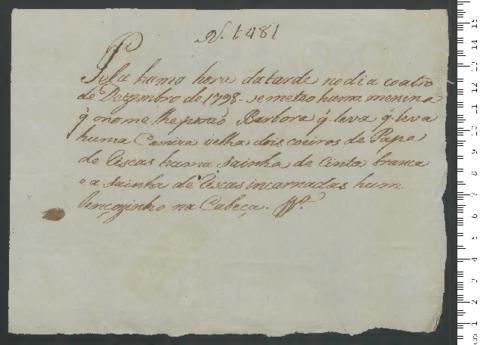 N. 1481
Pella huma hora da tarde no dia coatro
de Dezembro de 1798. se meteo huma menina
q̃ o nome he Barbora q̃ leva
huma Camiza velha dois coeiros de Papa
de Riscas huma sainha de Cinta branca
e a sainha de Riscas incarnadas hum
lençozinho na Cabeça.